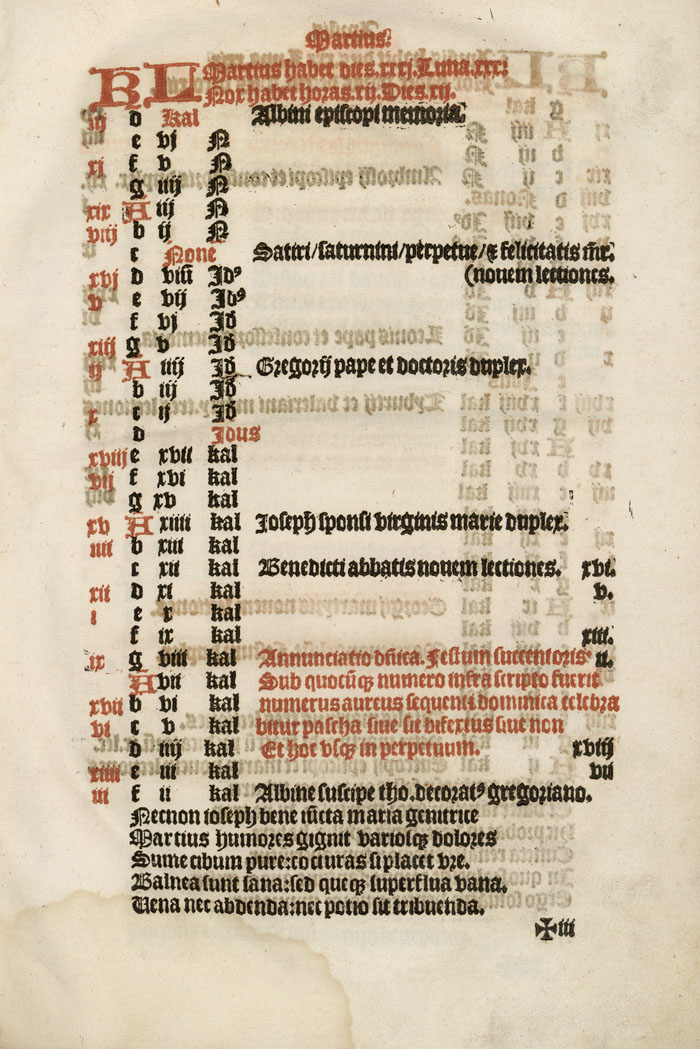 Martius.
KL Martius habet dies.xxxj.Luna.xxx:
Nox habet horas.xij.Dies.xij.
iij d kal Albini episcopi memoria.
e vj N
xj f v N
g iiij N
xix A iij N
viij b ij N
c None Satiri/saturnini/perpetue/& felicitatis mr̃.
xvj d viii Jdꝰ (nouem lectiones.
v e vij Jdꝰ
f vj Jd
xiij g v Jd
ij A iiij Jd Gregorij pape et doctoris duplex.
b iij Jd
x c ij Jd
d Jdus
xviij e xvii kal
vij f xvi kal
g xv kal
xv A xiiii kal Joseph sponsi virginis marie duplex.
iiii b xiii kal
c xii kal Benedicti abbatis nouem lectiones. xvi.
xii d xi kal v.
i e x kal
f ix kal xiii.
ix g viii kal Annunciatio dñica. Festum succentoris ii.
A vii kal Sub quocũqꝫ numero infra scripto fuerit
xvii b vi kal numerus aureus sequenti dominica celebra
vi c v kal bitur pascha siue sit bisextus siue non
d iiij kal Et hoc vsqꝫ in perpetuum. xviij
xiiii e iii kal vii
iii f ii kal Albine suscipe tho. decoratꝰ gregoriano.
Necnon ioseph bene iũcta maria genitrice
Martius humores gignit variosqꝫ dolores
Sume cibum pure:cocturas si placet vre.
Balnea sunt sana:sed queqꝫ superflua vana.
Uena nec abdenda:nec potio sit tribuenda.
✠iii